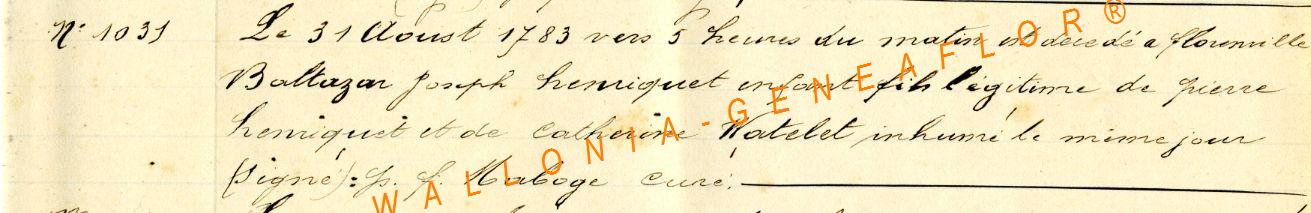 N° 1031 Le 31 Aoust 1783 vers 5 heures du matin est décedé a florenville
Baltazar Joseph henriquet enfant fils légitime de pierre
henriquet et de Catherine Watelet inhumé le même jour
(signé): p. f. Maboge curé.
WALLONIA-GENEAFLOR®